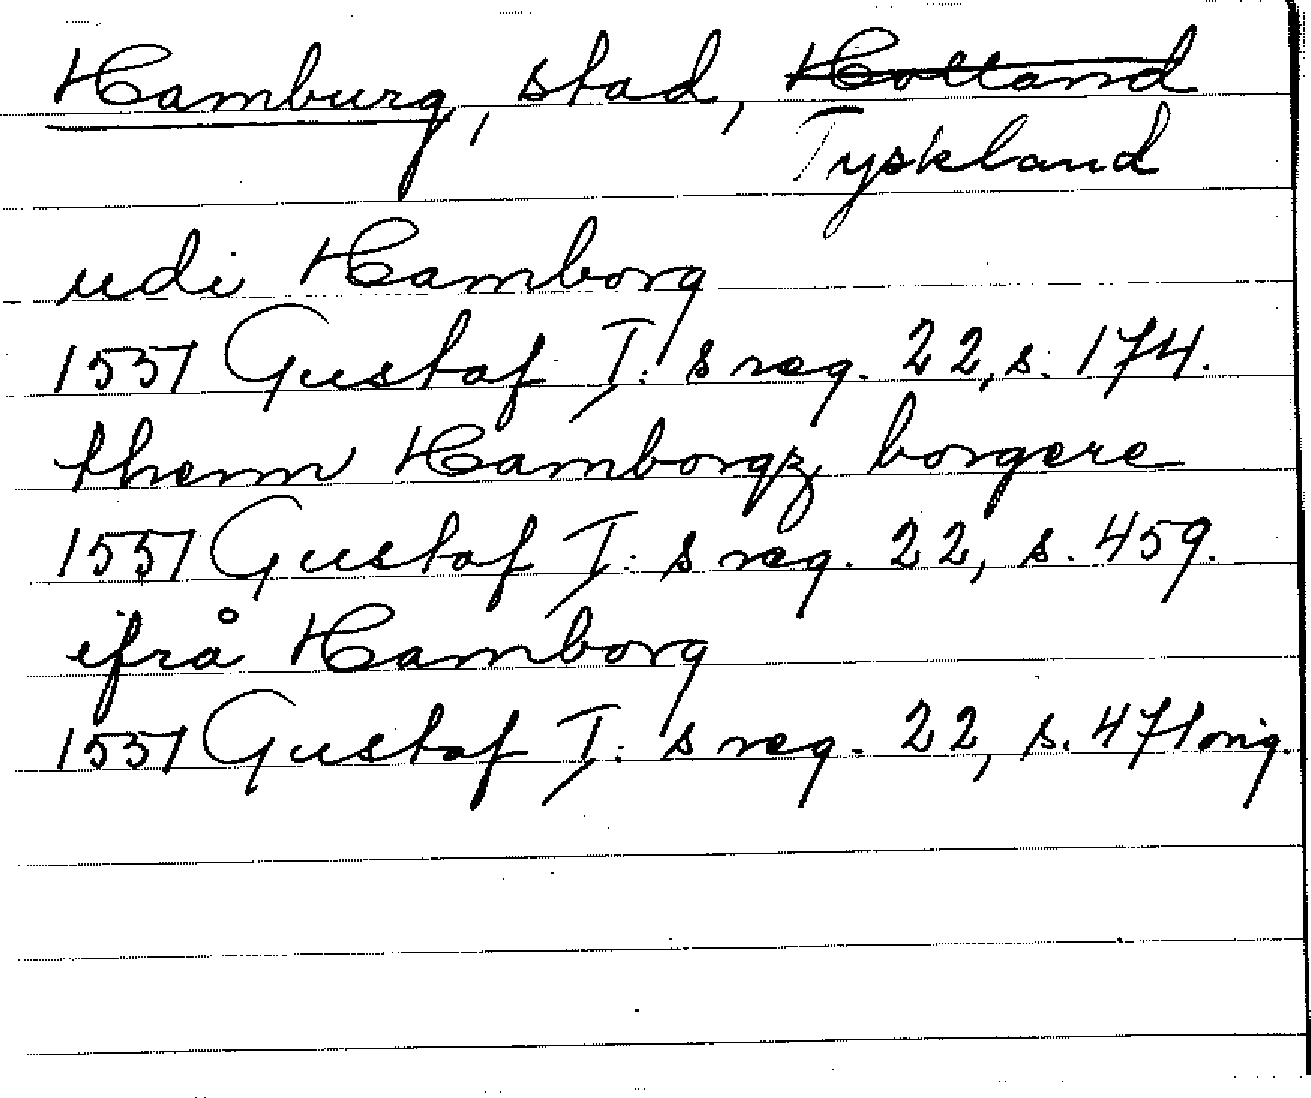 Hamburg, stad, Holland
Tyskland
udi Hamborg
1551 Gustaf I:s reg. 22, s. 174.
themm Hamborgz borgere
1551 Gustaf I:s reg. 22, s. 459.
ifrå Hamborg
1551 Gustaf I:s reg. 22, s. 471 orig.